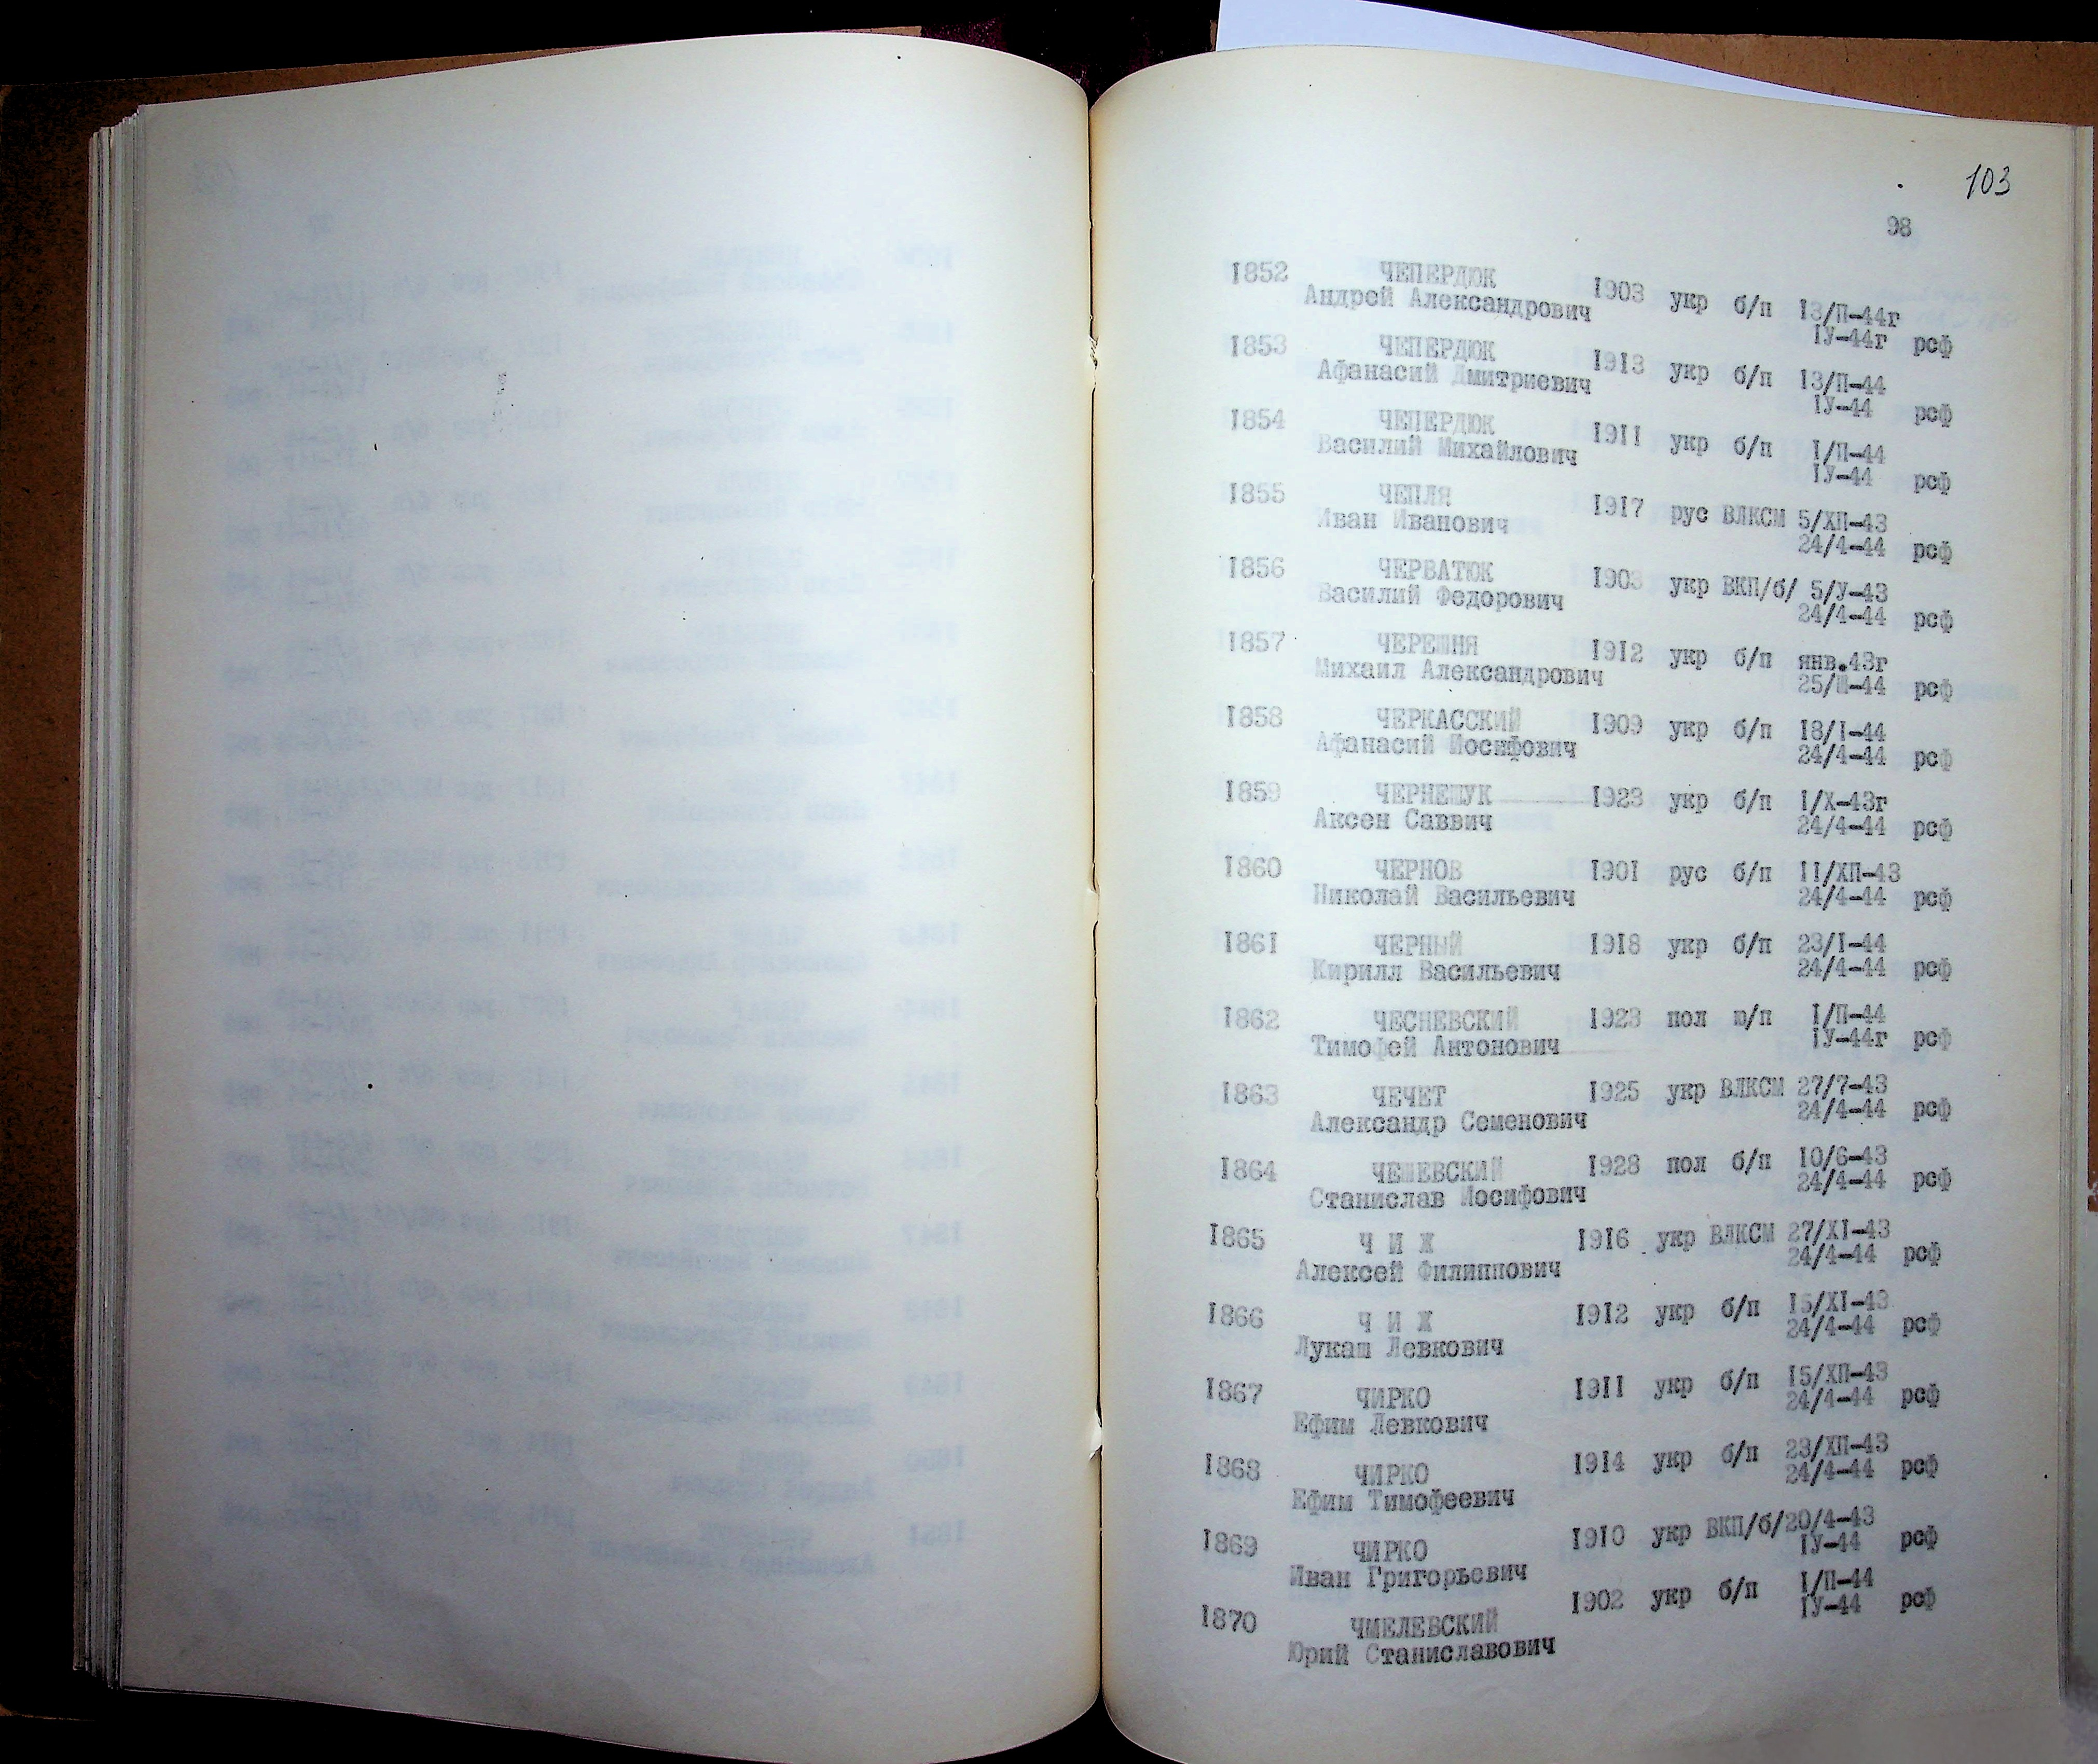 103
98
1852 ЧЕПЕРДЮК 1903 укр б/п 13/П-44г
Андрей Александрович IУ-44г рсф
1853 ЧЕПЕРДЮК 1913 укр б/п 13/П-44
Афанасий Дмитриевич IУ-44 рсф
1854 ЧЕПЕРДЮК 1911 укр б/п I/П-44
Василий Михайлович IУ-44 рсф
1855 ЧЕПЛЯ 1917 рус ВЛКСМ 5/ХП-43
Иван Иванович 24/4-44 рсф
1856 ЧЕРВАТЮК 1903 укр ВКП/б/ 5/У-43
Василий Федорович 24/4-44 рсф
1857 ЧЕРЕШНЯ 1912 укр б/п янв.43г
Михаил Александрович 25/Ш-44 рсф
1858 ЧЕРКАССКИЙ 1909 укр б/п 18/I-44
Афанасий Иосифович 24/4-44 рсф
1859 ЧЕРНЕШУК 1923 укр б/п I/Х-43г
Аксен Саввич 24/4-44 рсф
1860 ЧЕРНОВ 1901 рус б/п II/ХП-43
Николай Васильевич 24/4-44 рсф
1861 ЧЕРНЫЙ 1918 укр б/п 23/I-44
Кирилл Васильевич 24/4-44 рсф
1862 ЧЕСНЕВСКИЙ 1923 пол ю/п I/П-44
Тимофей Антонович IУ-44г рсф
1863 ЧЕЧЕТ 1925 укр ВЛКСМ 27/7-43
Александр Семенович 24/4-44 рсф
1864 ЧЕШЕВСКИЙ 1928 пол б/п 10/6-43
Станислав Иосифович 24/4-44 рсф
1865 Ч И Ж 1916 укр ВЛКСМ 27/XI-43
Алексей Филиппович 24/4-44 рсф
1866 Ч И Ж 1912 укр б/п 15/XI-43
Лукаш Левкович 24/4-44 рсф
1867 ЧИРКО 1911 укр б/п 15/ХП-43
Ефим Левкович 24/4-44 рсф
1868 ЧИРКО 1914 укр б/п 23/ХП-43
Ефим Тимофеевич 24/4-44 рсф
1869 ЧИРКО 1910 укр ВКП/б/20/4-43
Иван Григорьевич IУ-44 рсф
1870 ЧМЕЛЕВСКИЙ 1902 укр б/п I/П-44
Юрий Станиславович IУ-44 рсф